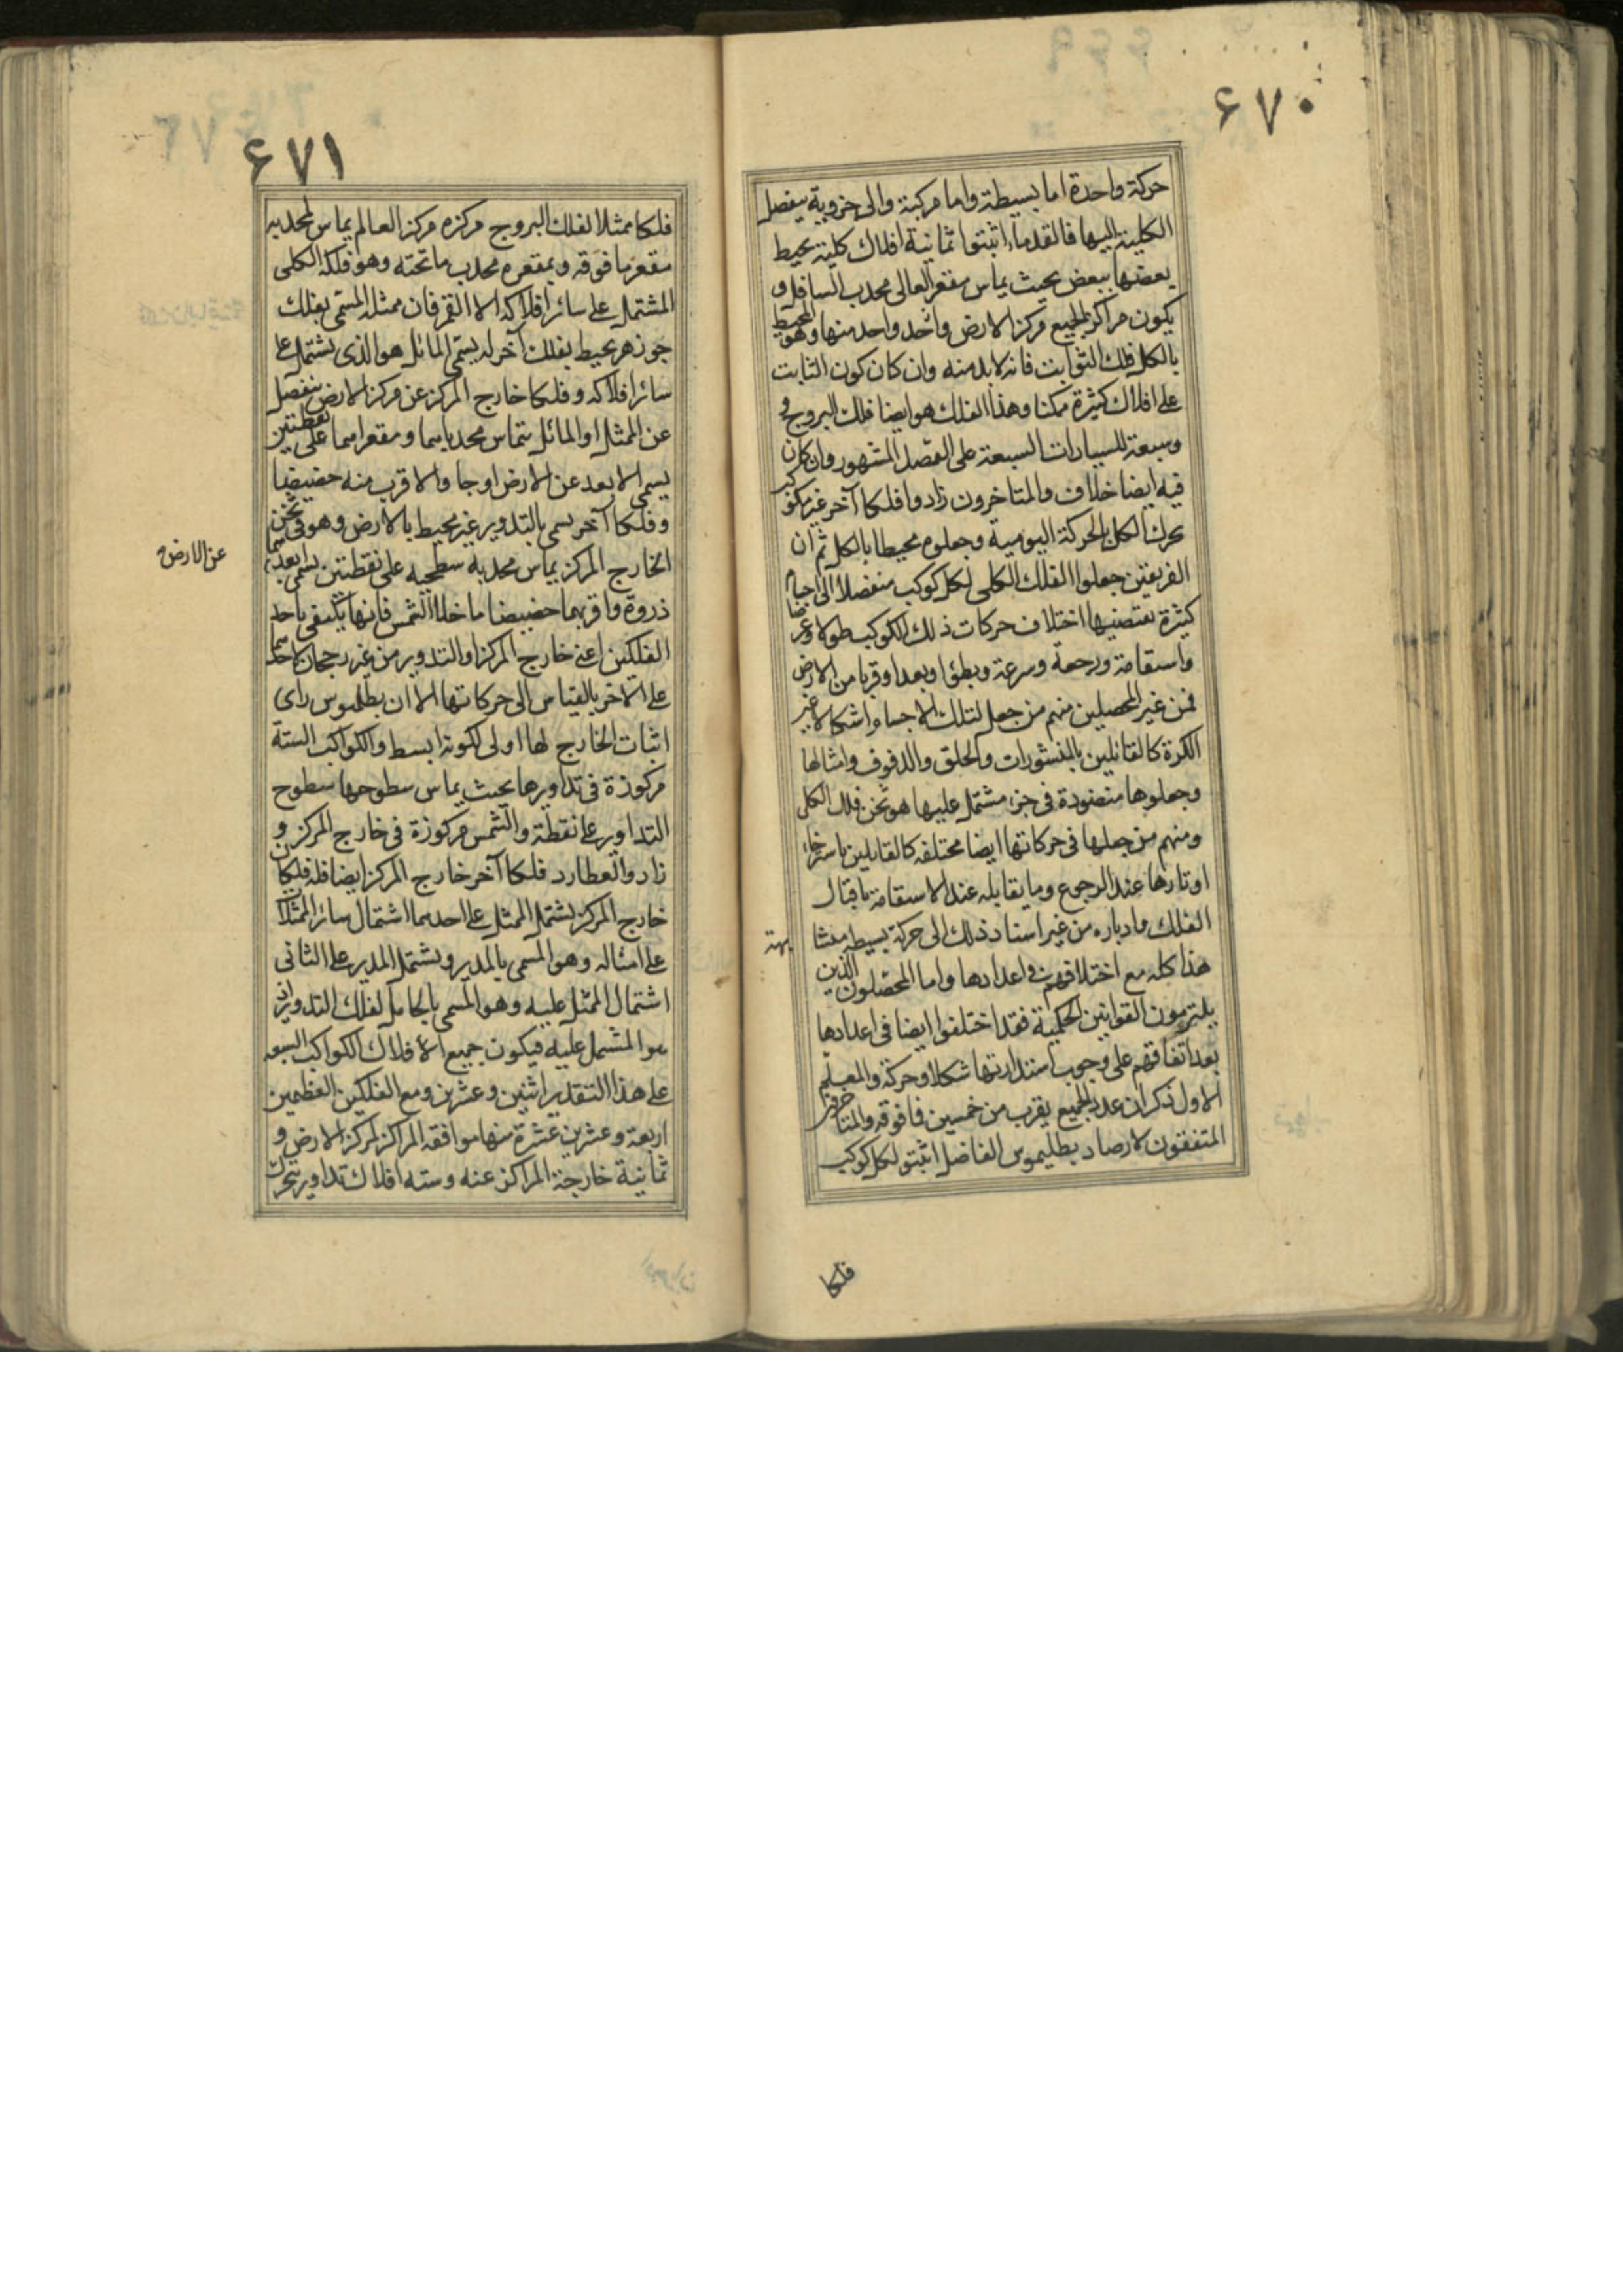 ۶۷۰
حركة واحدة اما بسيطة واما مركبة والى جزوية ينفصل
الكلية اليها فالقدماء اثبتوا ثمانية افلاك كلية يحيط
بعضها ببعض بحيث يماس مقعر العالى محدب السافل و
يكون مراكز الجميع مركز الارض واحد واحد منها وهو المحيط
بالكل فلك الثوابت فانه لابد منه وان كان كون الثابت
على افلاك كثيرة ممكنا وهذا الفلك هو ايضا فلك البروج و
وسبعة للسيارات السبعة على الفضل المشهور وان كان
فيه ايضا خلاف والمتاخرون زادوا فلكا آخر غير مكوكب
يحرك الكل بالحركة اليومية وجعلوه محيطا بالكل ثم ان
الفريقين جعلوا الفلك الكلى لكل كوكب منفصلا الى اجسام
كثيرة يقتضيها اختلاف حركات ذلك الكوكب طولا وعرضا
واستقامة ورجعة وسرعة وبطئا وبعدا وقربا من الارض
فمن غير المحصلين منهم من جعل لتلك الاجسام اشكالا غير
الكرة كالقائلين بالمنشورات والحلق والدفوف وامثالها
وجعلوها منضودة فى جزء مشتمل عليها هو ثخن فلك الكلى
ومنهم من جعلها فى حركاتها ايضا مختلفه كالقايلين باسترخاء
اوتارها عند الرجوع وما يقابله عند الاستقامة باقبال
الفلك وادباره من غير اسناد ذلك الى حركة بسيطه متشا
بهة
هذا كله مع اختلافهم فى اعدادها واما المحصلون الذين
يلتزمون القوانين الحكمية فقد اختلفوا ايضا فى اعدادها
بعد اتفاقهم على وجوب استدارتها شكلا وحركة والمعلم
الاول ذكر ان عدد الجميع يقرب من خمسين فافوقه والمتاخرون
المتفقون لارصاد بطليموس الفاضل اثبتو لكل كوكب
فلكا
۶۷۱
فلكا ممثلا لفلك البروج مركزه مركز العالم يماس بمحدبه
مقعر ما فوقه وبمقعره محدب ما تحته وهو فلكه الكلى
المشتمل على سائر افلاكه الا القمر فان ممثله المسمى بفلك
جوزهر يحيط بفلك آخر له يسمى المائل هو الذى يشتمل على
سائر افلاكه وفلكا خارج المركز عن مركز الارض ينفصل
عن الممثل او المائل يتماس محدباهما ومقعراهما على نقطتين
يسمى الابعد عن الارض اوجا والاقرب منه حضيضا
وفلكا آخر يسمى بالتدوير غير محيط بالارض وهو فى ثخن
الخارج المركز يماس محدبه سطحيه على نقطتين يسمى ابعدهما
عن الارض
ذروة واقربهما حضيضا ما خلا الشمس فانها يكتفى باحد
الفلكين اعنى خارج المركز او التدوير من غير رجحان لاحدهما
على الاخر بالقياس الى حركاتها الا ان بطلميوس راى
اثبات الخارج لها اولى لكونه ابسط والكواكب الستة
مركوزة فى تداويرها بحيث يماس سطوحها سطوح
التداوير على نقطة والشمس مركوزة فى خارج المركز و
زادوا لعطارد فلكا آخر خارج المركز ايضا فله فلكان
خارج المركز يشتمل الممثل على احدهما اشتمال سائر الممثلات
على امثاله وهو المسمى بالمدير ويشتمل المدير على الثانى
اشتمال الممثل عليه وهو المسمى بالحامل لفلك التدوير اذ
هو المشتمل عليه فيكون جميع الافلاك الكواكب السبعه
على هذا التقدير اثنين وعشرين ومع الفلكين العظيمين
اربعة وعشرين عشرة منها موافقه المراكز لمركز الارض و
ثمانية خارجة المراكز عنه وسته افلاك تداوير يتحرك